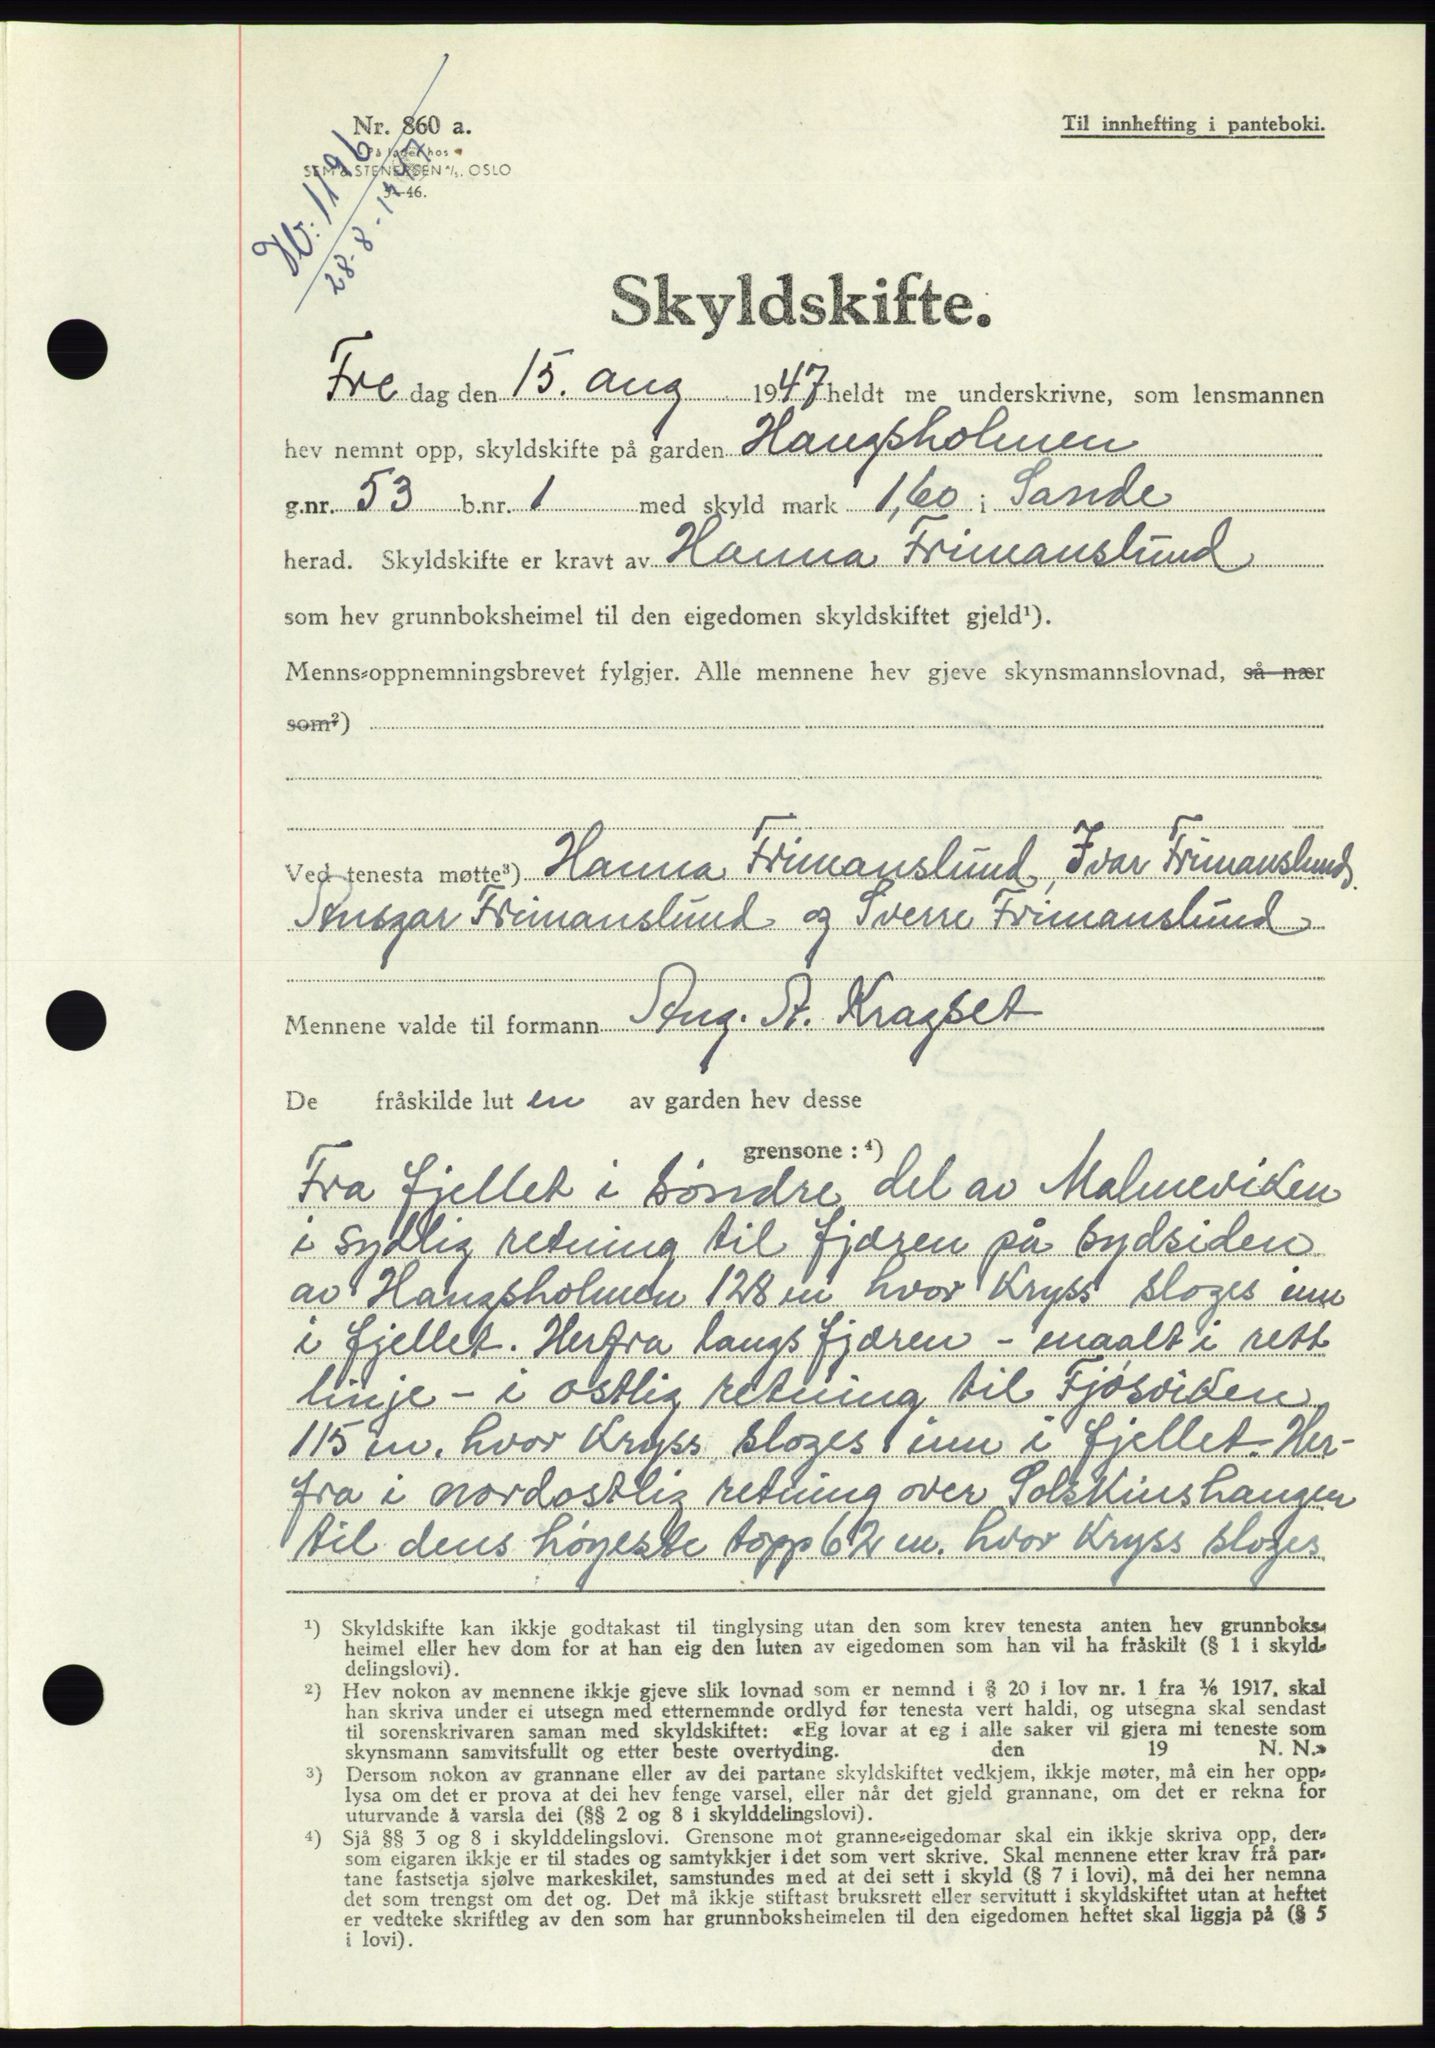 Nr. 860 a.
På lager hos
SEM & STENERSEN A/S, OSLO
3-46.
Til innhefting i panteboki.
Db: 1196
28-8-1947
Skyldskifte.
Fre dag den 15. aug 1947 heldt me underskrivne, som lensmannen
hev nemnt opp, skyldskifte på garden Haugsholmen
g.nr. 53 b.nr. 1 med skyld mark 1,60 i Sande
herad. Skyldskifte er kravt av Hanna Frimanslund
som hev grunnboksheimel til den eigedomen skyldskiftet gjeld¹).
Menns-oppnemningsbrevet fylgjer. Alle mennene hev gjeve skynsmannslovnad, så nær
som²)
Ved tenesta møtte³) Hanna Frimanslund, Ivar Frimanslund,
Ansgar Frimanslund og Sverre Frimanslund
Mennene valde til formann Aug. A. Kragset
De fråskilde lut en av garden hev desse
grensone : ⁴)
Fra fjellet i søndre del av Malmeviken
i sydlig retning til fjæren på sydsiden
av Haugsholmen 128 m hvor kryss sloges inn
i fjellet. Herfra langs fjæren - maalt i rett
linje - i ostlig retning til Fjósviken
115 m. hvor kryss sloges inn i fjellet. Her-
fra i nordostlig retning over Solskinshaugen
til dens høgeste topp 62 m. hvor kryss sloges
¹) Skyldskifte kan ikkje godtakast til tinglysing utan den som krev tenesta anten hev grunnboks-
heimel eller hev dom for at han eig den luten av eigedomen som han vil ha fråskilt (§ 1 i skyld-
delingslovi).
²) Hev nokon av mennene ikkje gjeve slik lovnad som er nemnd i § 20 i lov nr. 1 fra 1/6 1917, skal
han skriva under ei utsegn med etternemnde ordlyd før tenesta vert haldi, og utsegna skal sendast
til sorenskrivaren saman med skyldskiftet: «Eg lovar at eg i alle saker vil gjera mi teneste som
skynsmann samvitsfullt og etter beste overtyding. den 19 N. N.»
³) Dersom nokon av grannane eller av dei partane skyldskiftet vedkjem, ikkje møter, må ein her opp-
lysa om det er prova at dei hev fenge varsel, eller når det gjeld grannane, om det er rekna for
uturvande å varsla dei (§§ 2 og 8 i skylddelingslovi).
⁴) Sjå §§ 3 og 8 i skylddelingslovi. Grensone mot granne-eigedomar skal ein ikkje skriva opp, der-
som eigaren ikkje er til stades og samtykkjer i det som vert skrive. Skal mennene etter krav frå par-
tane fastsetja sjølve markeskilet, samstundes med at dei sett i skyld (§ 7 i lovi), må dei her nemna
det som trengst om det og. Det må ikkje stiftast bruksrett eller servitutt i skyldskiftet utan at heftet
er vedteke skriftleg av den som har grunnboksheimelen til den eigedomen heftet skal liggja på (§ 5
i lovi).